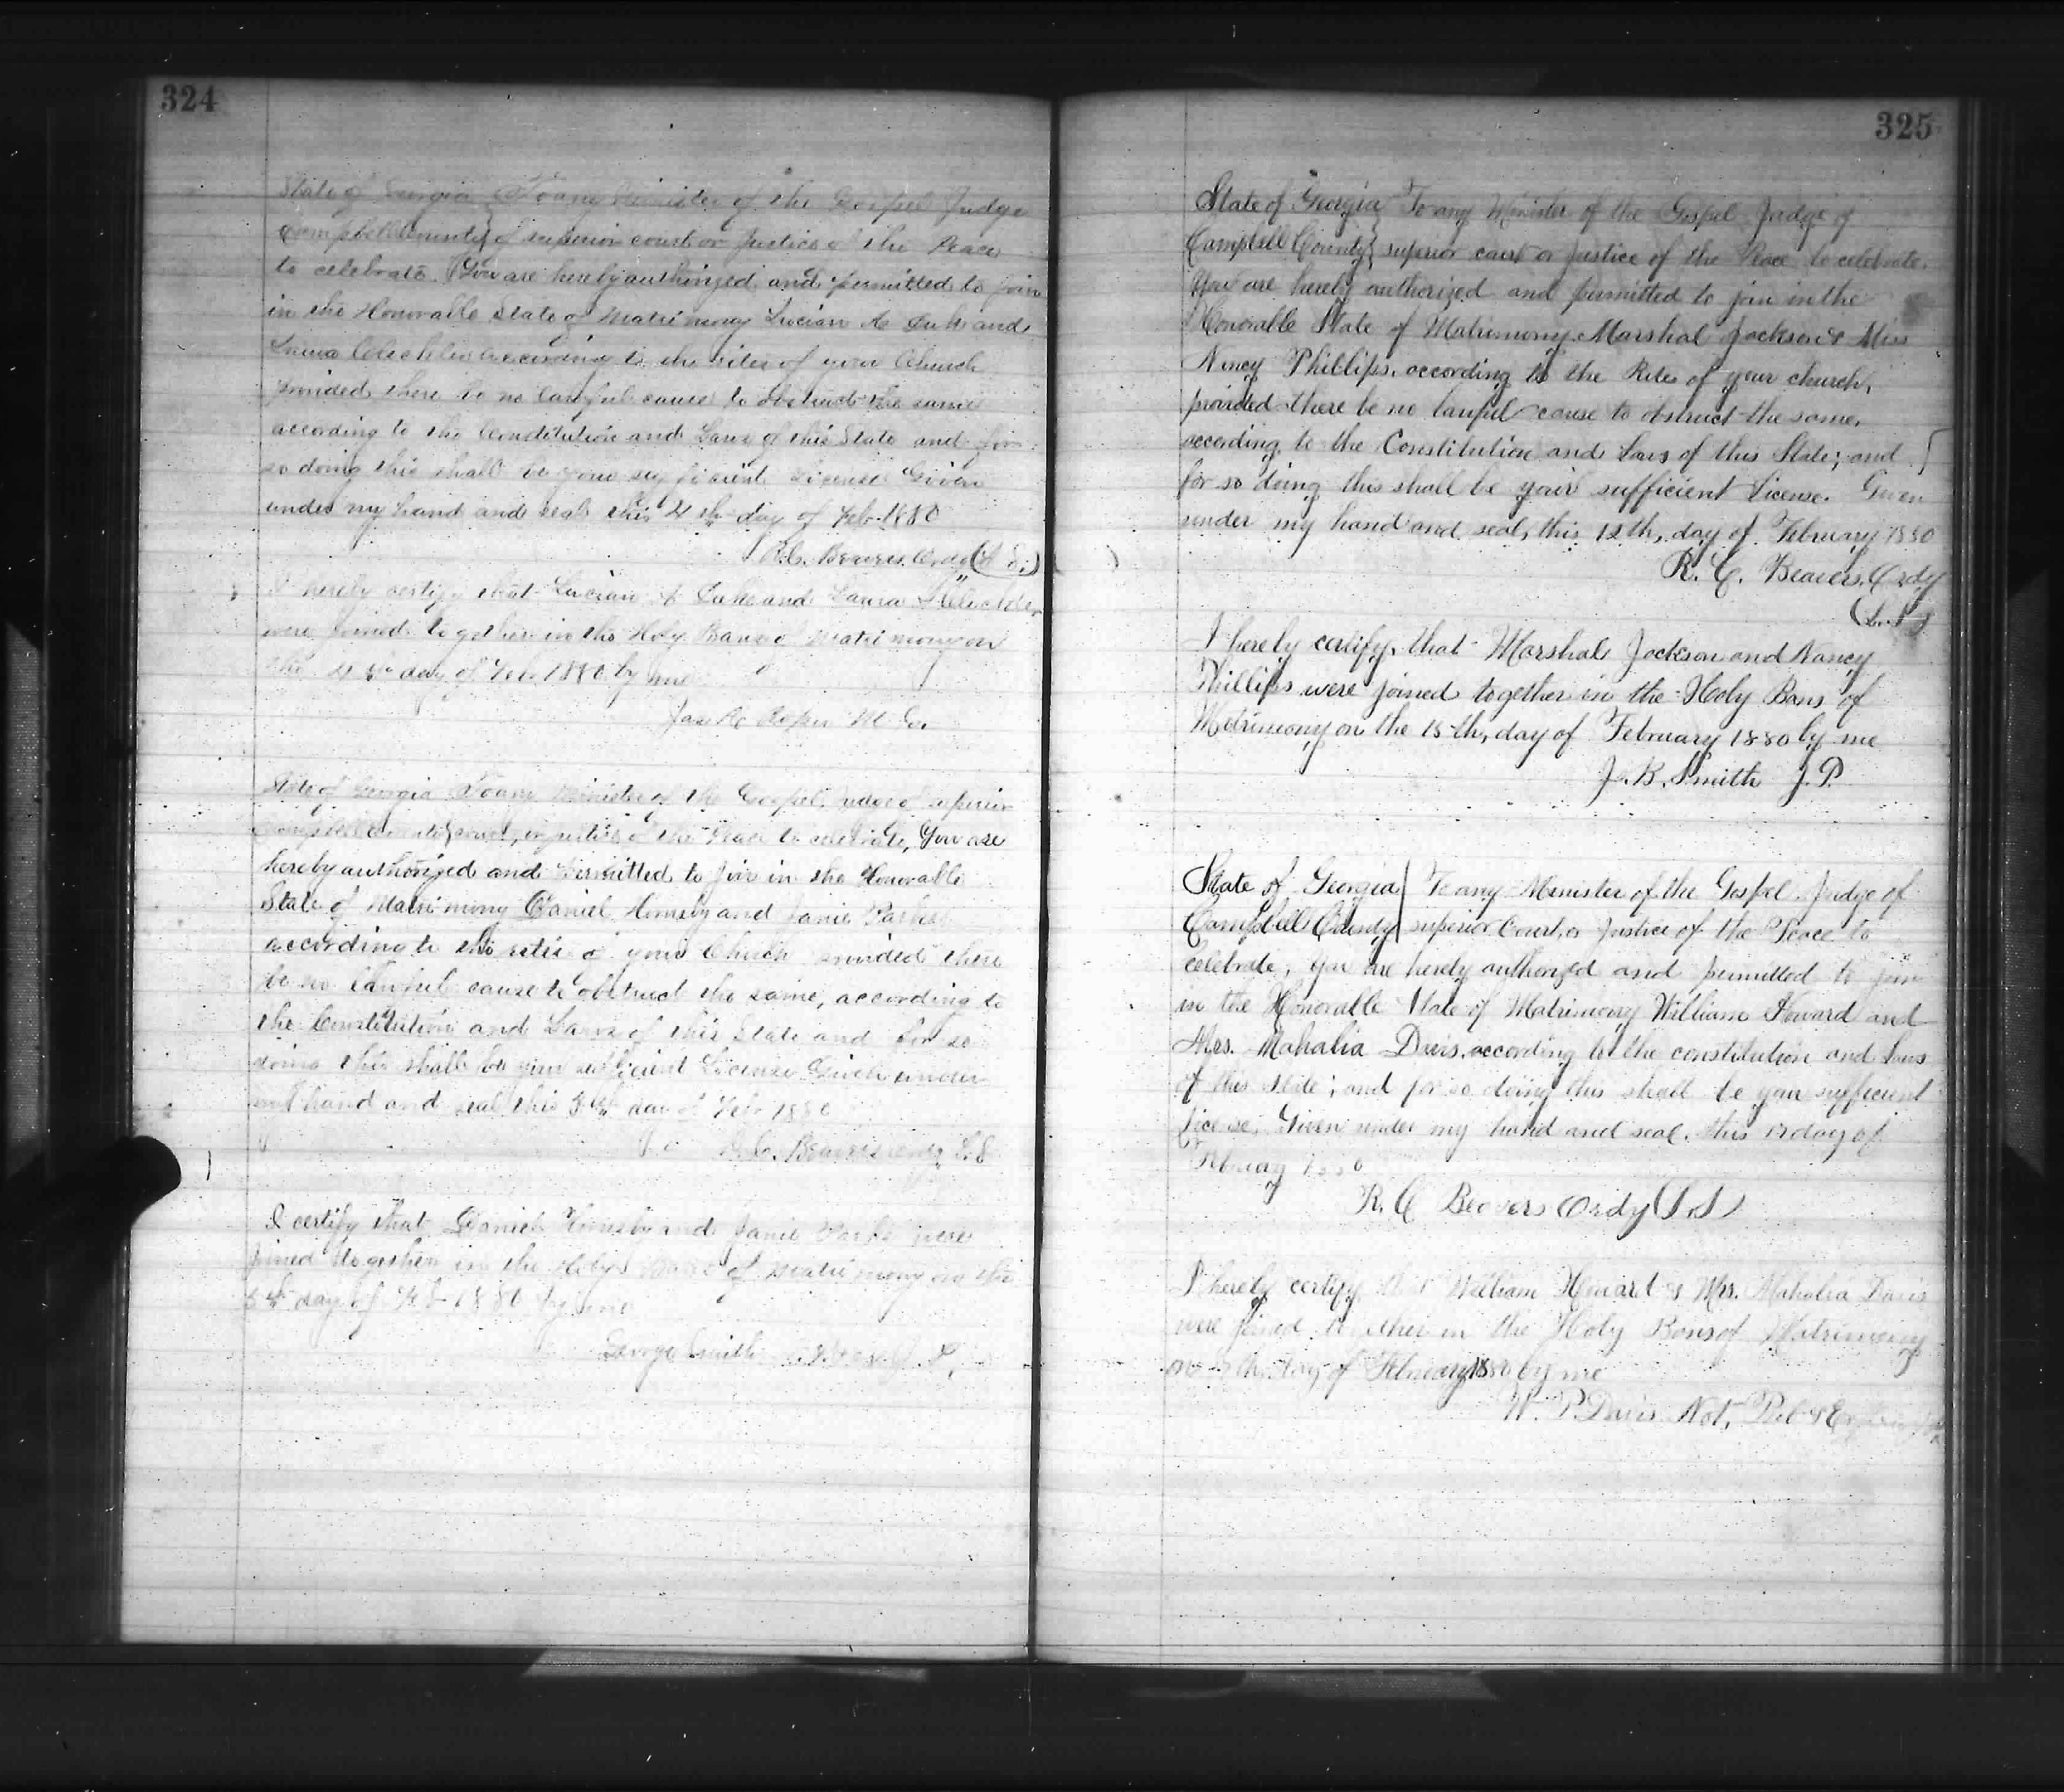 324
State of Georgia To any Minister of the Gospel Judge
Campbell County of superior court or Justice of the Peace
to celebrate. You are hereby authorized and permitted to join
in the Honorable State of Matrimony Lucian and
according to the rites of your Church
provided there be no lawful cause to obstruct the same
according to the Constitution and Laws of this State and for
so doing this shall be your sufficient License Given
under my hand and seal this 4th day of Feb. 1880
R.C. Beavers Ordy (L.S.)
I hereby certify that Lucian and Laura
were joined together in the Holy Bans of Matrimony on
the 4th day of Feb. 1880 by me
Jas M. G.
State of Georgia To any Minister of the Gospel, Judge of superior
Campbell County court, or justice of the Peace to celebrate, You are
hereby authorized and permitted to join in the Honorable
State of Matrimony Daniel Hornsby and Janie Parks
according to the rites of your Church provided there
be no lawful cause to obstruct the same, according to
the Constitution and Laws of this State and for so
doing this shall be your sufficient License Given under
my hand and seal this day of Feb 1880
R.C. Beavers ordy L.S
I certify that Daniel Hornsby and Janie Parks were
joined together in the Holy Bans of Matrimony on the
5th day of Feb 1880 by me
George Smith
325
State of Georgia } To any Minister of the Gospel Judge of
Campbell County } superior court or Justice of the Peace to celebrate.
You are hereby authorized and permitted to join in the
Honorable State of Matrimony Marshal Jackson & Miss
Nancy Phillips, according to the Rites of your church,
provided there be no lawful cause to obstruct the same,
according to the Constitution and Laws of this State; and
for so doing this shall be your sufficient License. Given
under my hand and seal, this 12th, day of February 1880
R. C. Beavers, Ordy
(L.S)
I hereby certify, that Marshal Jackson and Nancy
Phillips were joined together in the Holy Bans of
Matrimony on the 15th, day of February 1880 by me
J. B. Smith J.P.
State of Georgia | To any Minister of the Gospel Judge of
Campbell County | superior Court, or Justice of the Peace to
celebrate, you are hereby authorized and permitted to join
in the Honorable State of Matrimony William Howard and
Mrs. Mahalia Davis, according to the constitution and Laws
of this State; and for so doing this shall be your sufficient
License. Given under my hand and seal, this day of
February 1880
R. C Beavers Ordy (L.S)
I hereby certify that William Howard & Mrs. Mahalia Davis
were joined together in the Holy Bans of Matrimony
on day of February 1880 by me
W. P. Davis Not. Pub &